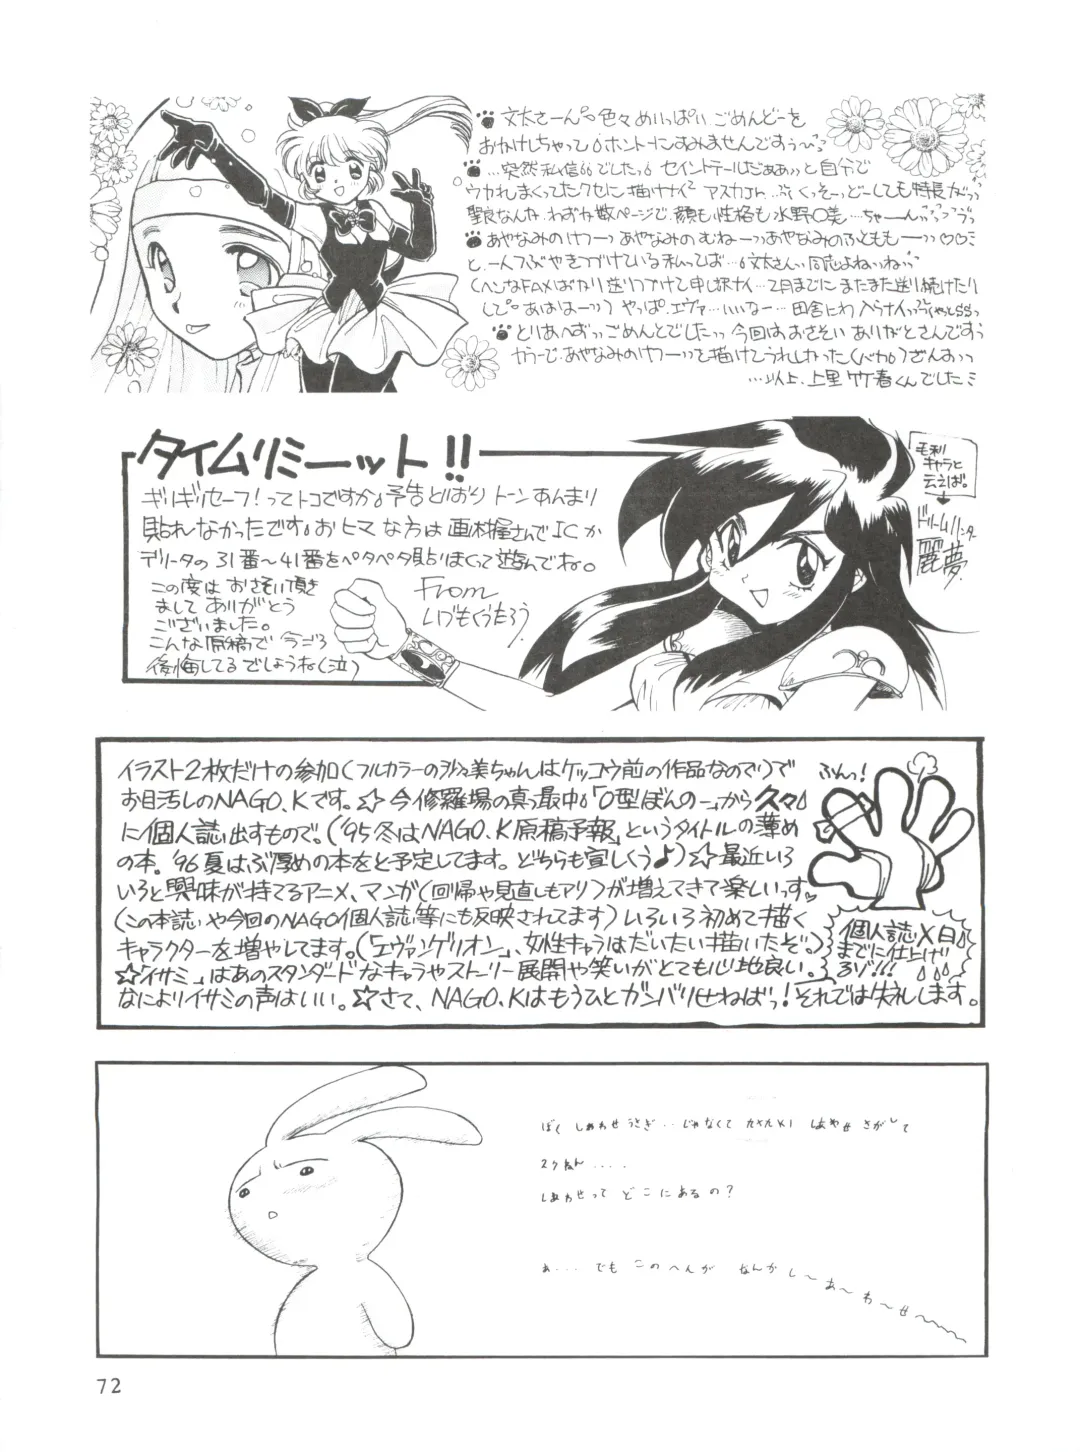 文太さーん 色々めいっぱいごめんどーを
おかけしちゃって ホントーにすみませんですぅ
…突然私信でしたっ セイントテールだぁぁっと自分で
ウカれまくってたクセに描けナイ アスカJr. …くっそーっどーしても特長がっ
聖良なんか、わずか数ページで、顔も性格も水野〇美…ちゃーん
あやなみのけつーっあやなみのむねーっあやなみのふとももーっ♡♡
と、一人でつぶやきつづけている私ってば… 文太さんっ同志よねっねっ
(ヘンなFAXばかり送りつづけて申し訳ナイ…2月までにまたまた送り続けたり
して あははーっ) やっぱ、エヴァ…いいなー…田舎にわ入らナイっ
とりあへずっごめんとでしたっ 今回はおさそいありがとさんですぅ
…以上、上里竹春くんでした
タイムリミーット!!
ギリギリセーフ!ってトコですか。予告どおりトーンあんまり
貼れなかったです。おヒマな方は画材屋さんでICか
デリータの31番～41番をペタペタ貼りまくって遊んでね。
この度はおさそい頂き
ましてありがとう
ございました。
こんな原稿で今ごろ
後悔してるでしょうね(泣)
From
いづもくうたろう
毛利
キャラと
云えば。
ドリームハンター
麗夢
イラスト2枚だけの参加(フルカラーの美ちゃんはケッコウ前の作品なので)で
お目活しのNAGO.Kです。☆今修羅場の真っ最中。「O型ぼんのーっ」から久々
に個人誌出すもので。(「'95冬はNAGO.K原稿予報」というタイトルの薄め
の本。'96夏はぶ厚めの本をと予定してます。どちらも宜しくう♪)☆最近いろ
いろと興味が持てるアニメ、マンガ(回帰や見直しもアリ)が増えてきて楽しいっす♡
(この本誌や今回のNAGO個人誌等にも反映されてます)いろいろ初めて描く
キャラクターを増やしてます。(「エヴァンゲリオン」、女性キャラはだいたい描いたぞ。)
☆「イサミ」はあのスタンダードなキャラやストーリー展開や笑いがとても心地良い。
なによりイサミの声はいい。☆さて、NAGO.Kはもうひとガンバリせねばっ!それでは失礼します。
ふんっ!
個人誌〆白
までに仕上げ
るゾ!!!
ぼく しあわせうさぎ・・じゃなくて はやせ さがして
しあわせって どこにあるの?
ぁ・・・ でも このへんが なんか し～あ～わ～せ～
72